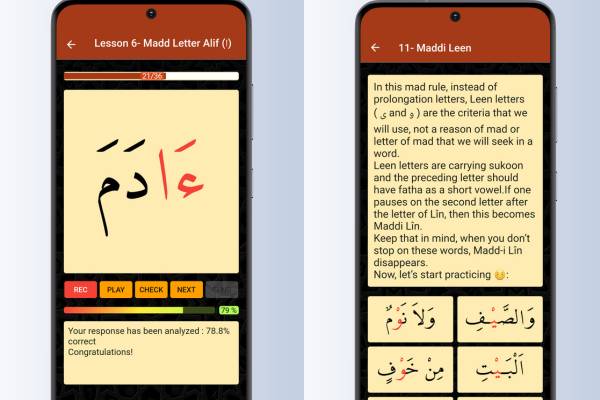 Lesson 6- Madd Letter Alif (ا)
21/36
ءَادَمَ
REC
PLAY
CHECK
NEXT
79 %
Your response has been analyzed : 78.8%
correct
Congratulations!
11- Maddi Leen
In this mad rule, instead of
prolongation letters, Leen letters
( و and ى ) are the criteria that we
will use, not a reason of mad or
letter of mad that we will seek in a
word.
Leen letters are carrying sukoon
and the preceding letter should
have fatha as a short vowel.If one
pauses on the second letter after
the letter of Lîn, then this becomes
Maddi Lîn.
Keep that in mind, when you don’t
stop on these words, Madd-i Lîn
disappears.
Now, let’s start practicing 😊:
وَالصَّيْفِ
وَلَا نَوْمٌ
اَلْبَيْتِ
مِنْ خَوْفٍ